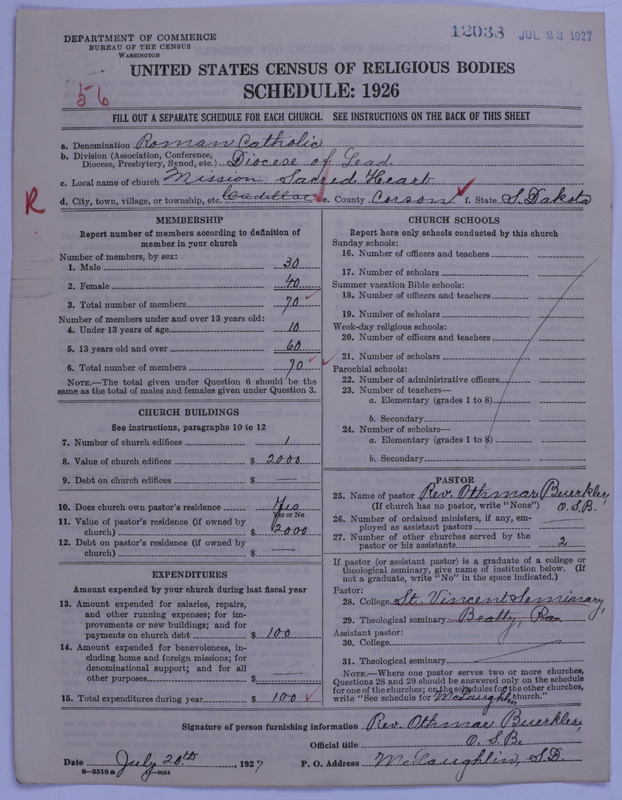 DEPARTMENT OF COMMERCE
BUREAU OF THE CENSUS
WASHINGTON
12033 JUL 23 1927
56
UNITED STATES CENSUS OF RELIGIOUS BODIES
SCHEDULE: 1926
FILL OUT A SEPARATE SCHEDULE FOR EACH CHURCH. SEE INSTRUCTIONS ON THE BACK OF THIS SHEET
a. Denomination Roman Catholic
b. Division (Association, Conference,
Diocese, Presbytery, Synod, etc.) Diocese of Lead
c. Local name of church Mission Sacred Heart
R d. City, town, village, or township, etc. Cadillac e. County Corson f. State S. Dakota
MEMBERSHIP
Report number of members according to definition of
member in your church
Number of members, by sex:
1. Male 30
2. Female 40
3. Total number of members 70
Number of members under and over 13 years old:
4. Under 13 years of age 10
5. 13 years old and over 60
6. Total number of members 70
NOTE.—The total given under Question 6 should be the
same as the total of males and females given under Question 3.
CHURCH BUILDINGS
See instructions, paragraphs 10 to 12
7. Number of church edifices 1
8. Value of church edifices $ 2000
9. Debt on church edifices $ —
10. Does church own pastor's residence Yes
Yes or No
11. Value of pastor's residence (if owned by
church) $ 2000
12. Debt on pastor's residence (if owned by
church) $ —
EXPENDITURES
Amount expended by your church during last fiscal year
13. Amount expended for salaries, repairs,
and other running expenses; for im-
provements or new buildings; and for
payments on church debt $ 100
14. Amount expended for benevolences, in-
cluding home and foreign missions; for
denominational support; and for all
other purposes $ —
15. Total expenditures during year $ 100
CHURCH SCHOOLS
Report here only schools conducted by this church
Sunday schools:
16. Number of officers and teachers
17. Number of scholars
Summer vacation Bible schools:
18. Number of officers and teachers
19. Number of scholars
Week-day religious schools:
20. Number of officers and teachers
21. Number of scholars
Parochial schools:
22. Number of administrative officers
23. Number of teachers—
a. Elementary (grades 1 to 8)
b. Secondary
24. Number of scholars—
a. Elementary (grades 1 to 8)
b. Secondary
PASTOR
25. Name of pastor Rev. Othmar Buerkler,
(If church has no pastor, write "None") O.S.B.
26. Number of ordained ministers, if any, em-
ployed as assistant pastors —
27. Number of other churches served by the
pastor or his assistants 2
If pastor (or assistant pastor) is a graduate of a college or
theological seminary, give name of institution below. (If
not a graduate, write "No" in the space indicated.)
Pastor:
28. College St. Vincent Seminary,
29. Theological seminary Beatty, Pa.
Assistant pastor:
30. College
31. Theological seminary
NOTE.—Where one pastor serves two or more churches,
Questions 28 and 29 should be answered only on the schedule
for one of the churches; on the schedules for the other churches,
write "See schedule for McLaughlin church."
Signature of person furnishing information Rev. Othmar Buerkler,
Official title O.S.B.
Date July 20th, 1927 P. O. Address McLaughlin, S.D.
8—5518 a